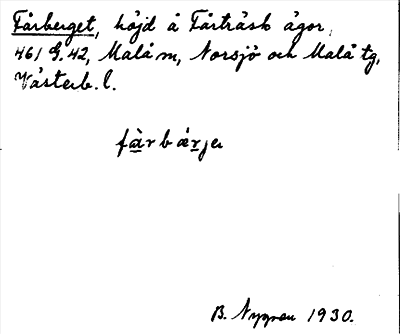 Fårberget, höjd å Fårträsk ägor,
461 G. 42, Malå sn, Norsjö och Malå tg,
Västerb. l.
fàrbárje
B. Nygren 1930.